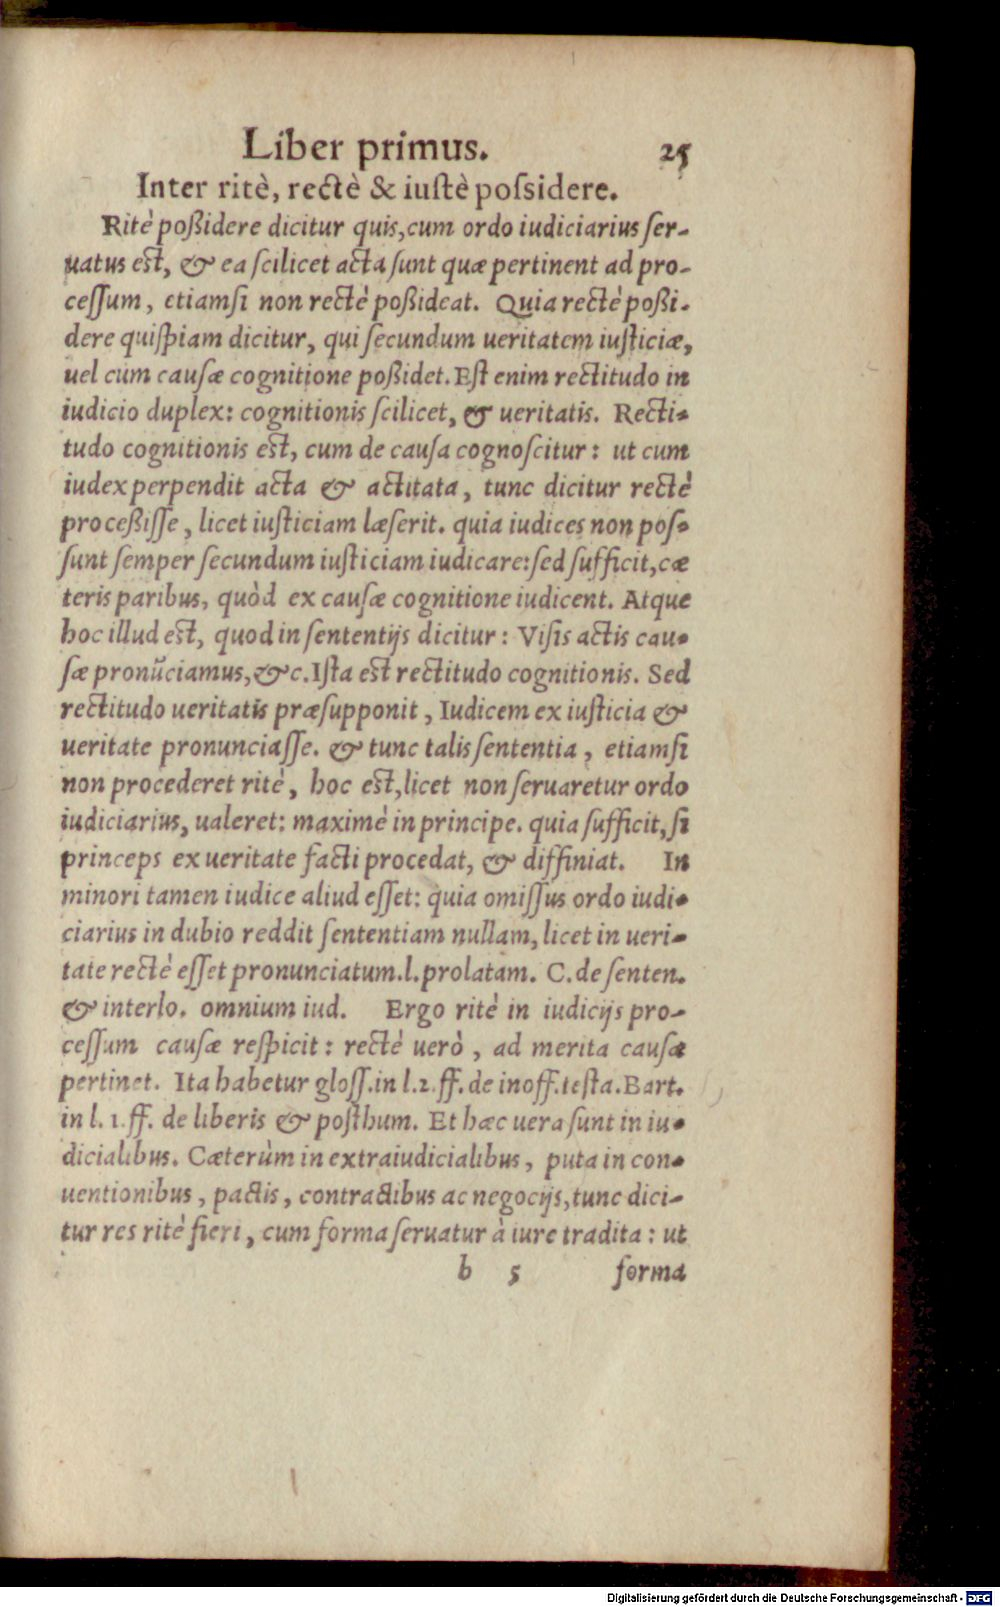 Liber primus. 25
Inter ritè, rectè & iustè possidere.
Ritè poßidere dicitur quis, cum ordo iudiciarius ser-
uatus est, & ea scilicet acta sunt quæ pertinent ad pro-
cessum, etiamsi non rectè poßideat. Quia rectè poßi-
dere quispiam dicitur, qui secundum ueritatem iusticiæ,
uel cum causæ cognitione poßidet. Est enim rectitudo in
iudicio duplex: cognitionis scilicet, & ueritatis. Recti-
tudo cognitionis est, cum de causa cognoscitur: ut cum
iudex perpendit acta & actitata, tunc dicitur rectè
proceßisse, licet iusticiam læserit. quia iudices non pos-
sunt semper secundum iusticiam iudicare: sed sufficit, cæ
teris paribus, quòd ex causæ cognitione iudicent. Atque
hoc illud est, quod in sententijs dicitur: Visis actis cau-
sæ pronũciamus, &c. Ista est rectitudo cognitionis. Sed
rectitudo ueritatis præsupponit, Iudicem ex iusticia &
ueritate pronunciasse. & tunc talis sententia, etiamsi
non procederet ritè, hoc est, licet non seruaretur ordo
iudiciarius, ualeret: maximè in principe. quia sufficit, si
princeps ex ueritate facti procedat, & diffiniat. In
minori tamen iudice aliud esset: quia omissus ordo iudi-
ciarius in dubio reddit sententiam nullam, licet in ueri-
tate rectè esset pronunciatum. l. prolatam. C. de senten.
& interlo. omnium iud. Ergo ritè in iudicijs pro-
cessum causæ respicit: rectè uerò, ad merita causæ
pertinet. Ita habetur gloss. in l. 2. ff. de inoff. testa. Bart.
in l. 1. ff. de liberis & posthum. Et hæc uera sunt in iu-
dicialibus. Cæterùm in extraiudicialibus, puta in con-
uentionibus, pactis, contractibus ac negocijs, tunc dici-
tur res ritè fieri, cum forma seruatur à iure tradita: ut
b 5 forma
Digitalisierung gefördert durch die Deutsche Forschungsgemeinschaft - DFG